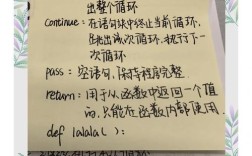 出整个循环
continue：在语句块中终止当前循环，
跳出该次循环，执行下一
次循环
pass：空语句，保持程序完整
return：用于从函数中返回一个值
的，只能在函数内部使用
def lalala()：